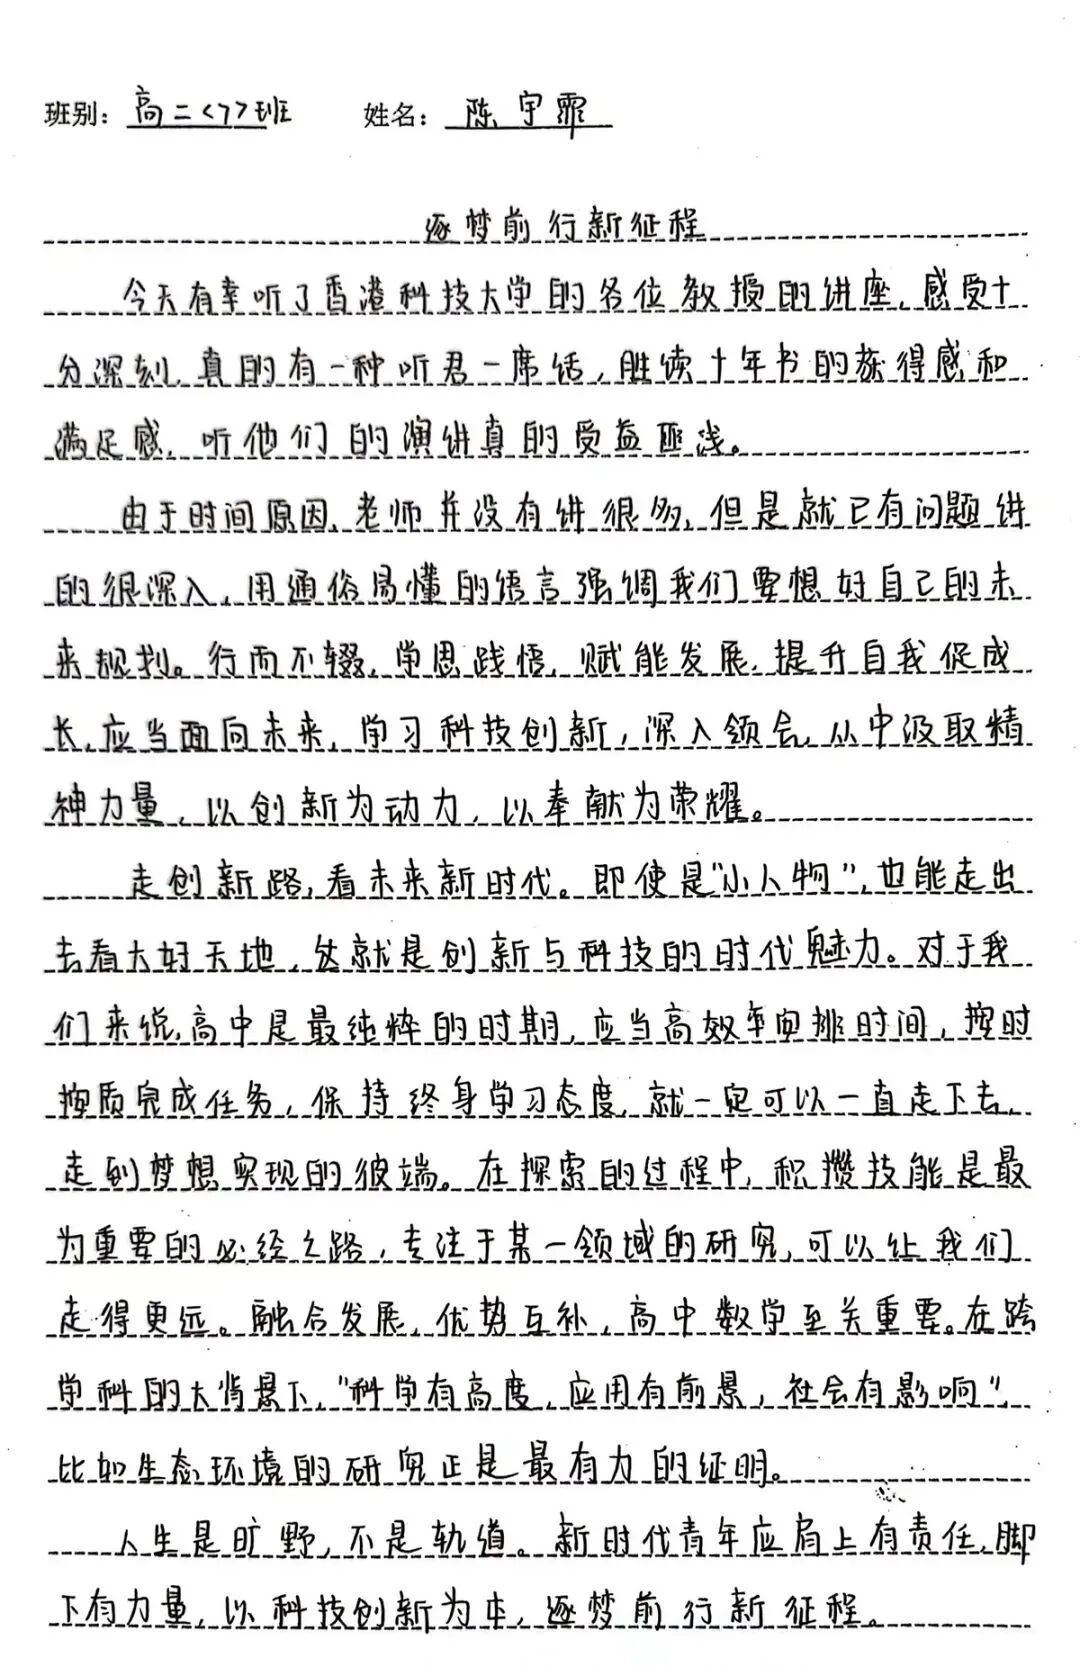 班别：高二<7>班 姓名：陈宇霏
逐梦前行新征程
今天有幸听了香港科技大学的各位教授的讲座，感受十
分深刻，真的有一种听君一席话，胜读十年书的获得感和
满足感，听他们的演讲真的受益匪浅。
由于时间原因，老师并没有讲很多，但是就已有问题讲
的很深入，用通俗易懂的语言强调我们要想好自己的未
来规划。行而不辍，学思践悟，赋能发展，提升自我促成
长，应当面向未来，学习科技创新，深入领会，从中汲取精
神力量，以创新为动力，以奉献为荣耀。
走创新路，看未来新时代。即使是“小人物”，也能走出
去看大好天地，这就是创新与科技的时代魅力。对于我
们来说，高中是最纯粹的时期，应当高效率安排时间，按时
按质完成任务，保持终身学习态度，就一定可以一直走下去，
走到梦想实现的彼端。在探索的过程中，积攒技能是最
为重要的必经之路，专注于某一领域的研究，可以让我们
走得更远。融合发展，优势互补，高中数学至关重要。在跨
学科的大背景下，“科学有高度，应用有前景，社会有影响”，
比如生态环境的研究正是最有力的证明。
人生是旷野，不是轨道。新时代青年应肩上有责任，脚
下有力量，以科技创新为本，逐梦前行新征程。